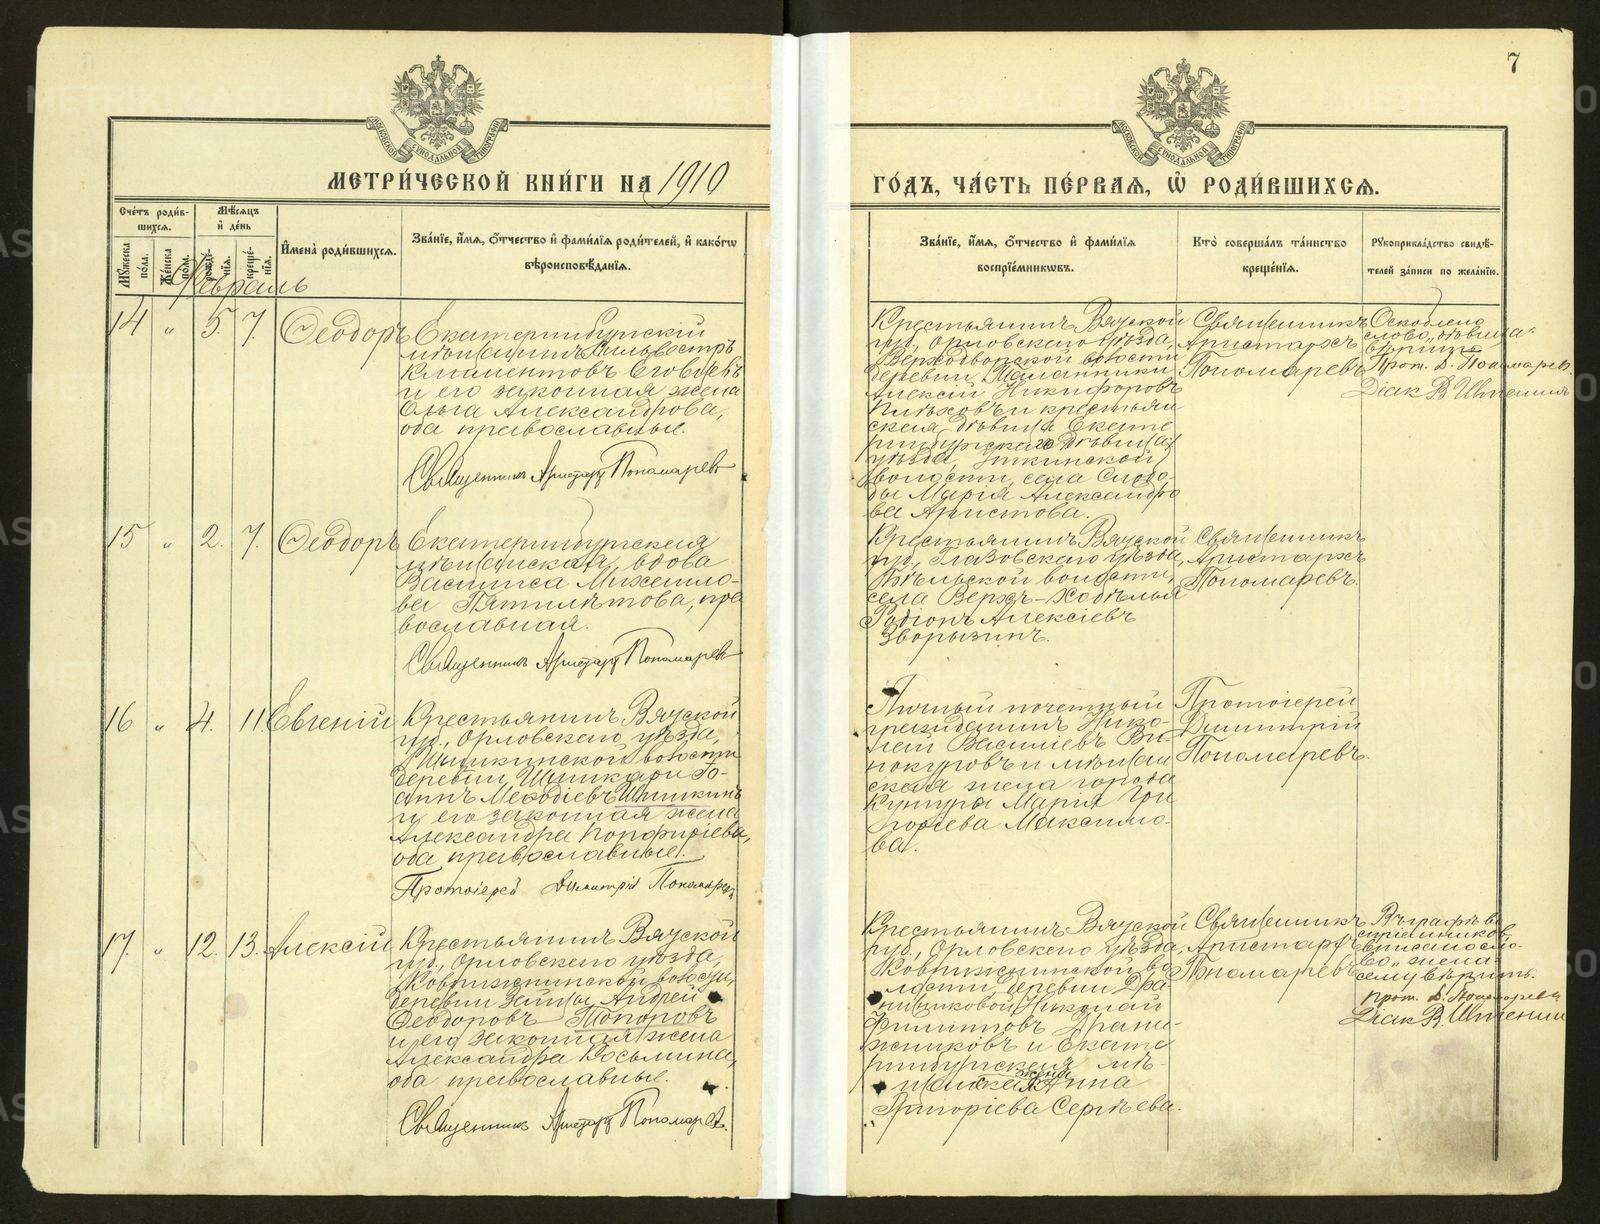 7
МЕТРИ́ЧЕСКОЙ КНИ́ГИ НА 1910
ГО́ДЪ, ЧА́СТЬ ПЕ́РВАЯ, Ѡ҆ РОДИ́ВШИХСЯ.
Сче́тъ роди́в-
шихся.
Мѣ́сяцъ
и҆ де́нь
Му́жеска
по́ла.
Же́нска
по́ла.
рожде́-
нїя.
креще́-
нїя.
И҆мена̀ роди́вшихся.
Зва́нїе, и҆́мя, ѻ҆́тчество и҆ фами́лїя роди́телей, и҆ како́гѡ
вѣроисповѣ́данїя.
Зва́нїе, и҆́мя, ѻ҆́тчество и҆ фами́лїя
воспрїе́мникѡвъ.
Кто̀ соверша́лъ та́инство
креще́нїя.
Рукоприкла́дство свидѣ́-
телей за́писи по жела́нїю.
Февраль
14 " 5. 7. Ѳеодоръ
Екатеринбургскій
мѣщанинъ Сильвестръ
Климентовъ
и его законная жена
Ольга Александрова,
оба православные.
Священникъ Аристархъ Пономаревъ
Крестьянинъ Вятской
губ., Орловскаго уѣзда,
Верходворской волости
деревни
Алексій Никифоровъ
и крестьян
ская дѣвица Екате
ринбургскаго
уѣзда,
волости, села Слобо-
ды Марія Александро
ва Аристова.
Священникъ
Аристархъ
Пономаревъ
Оскоблено
слово "дѣвица"
вѣрить
Прот. Д. Пономарев.
Діак В. Иштенинъ
15 " 2. 7. Ѳеодоръ
Екатеринбургская
мѣщанская вдова
Василиса Михаило-
ва Пятилѣтова, пра
вославная.
Священникъ Аристархъ Пономаревъ
Крестьянинъ Вятской
губ., Глазовскаго уѣзда,
волости,
села Верхъ-
Родіонъ Алексіевъ
Зворыгинъ.
Священникъ
Аристархъ
Пономаревъ.
16 " 4. 11 Евгеній
Крестьянинъ Вятской
губ., Орловскаго уѣзда,
Шишкинской волости
деревни Шишкари Іо-
аннъ Меѳодіевъ Шишкинъ
и его законная жена
Александра Порфиріева,
оба православные.
Протоіерей Димитрій Пономаревъ
Личный почетный
гражданинъ Нико-
лай Василіевъ Ви-
нокуровъ и мѣщан
ская жена города
Кунгура Марія Гри
горіева Максимо-
ва.
Протоіерей
Димитрій
Пономаревъ.
17. " 12. 13. Алексій
Крестьянинъ Вятской
губ., Орловскаго уѣзда,
волости,
деревни Зайцы Андрей
Ѳеодоровъ Топоровъ
и его законная жена
Александра Косьмина,
оба православные.
Священникъ Аристархъ Пономаревъ.
Крестьянинъ Вятской
губ., Орловскаго уѣзда,
во-
лости, деревни Дра-
нишниковой Николай
Филипповъ Драни-
шниковъ и Екате
ринбургская мѣ-
щанская жена Анна
Григоріева Сергѣева.
Священникъ
Аристархъ
Пономаревъ
Въ графѣ во
спріемниковъ
вписано сло-
во "жена"
сему вѣрить.
Прот. Д. Пономаревъ
Діак В. Иштенинъ
METRIKI.GASO-URAL.RU